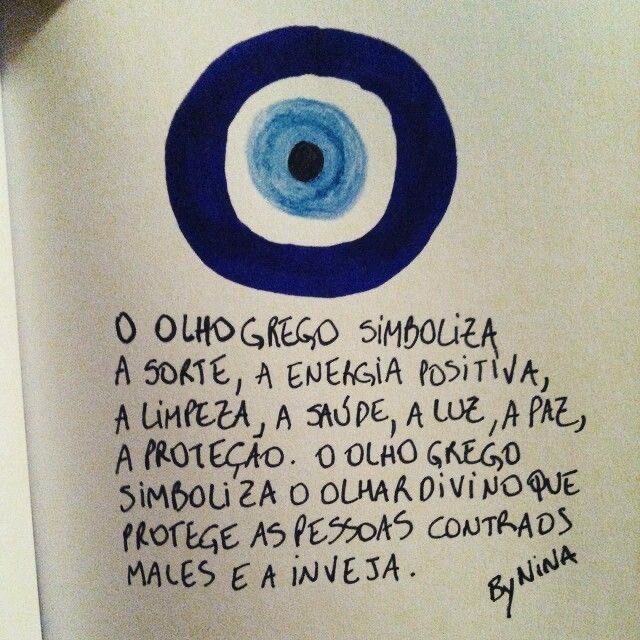 O OLHO GREGO SIMBOLIZA
A SORTE, A ENERGIA POSITIVA,
A LIMPEZA, A SAÚDE, A LUZ, A PAZ,
A PROTEÇÃO. O OLHO GREGO
SIMBOLIZA O OLHAR DIVINO QUE
PROTEGE AS PESSOAS CONTRA OS
MALES E A INVEJA.
By NINA